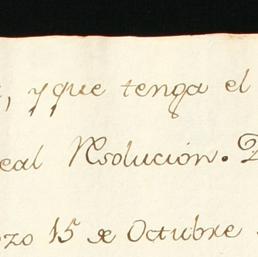 , y que tenga el
eal Resolucion.
ozo 15 de Octubre